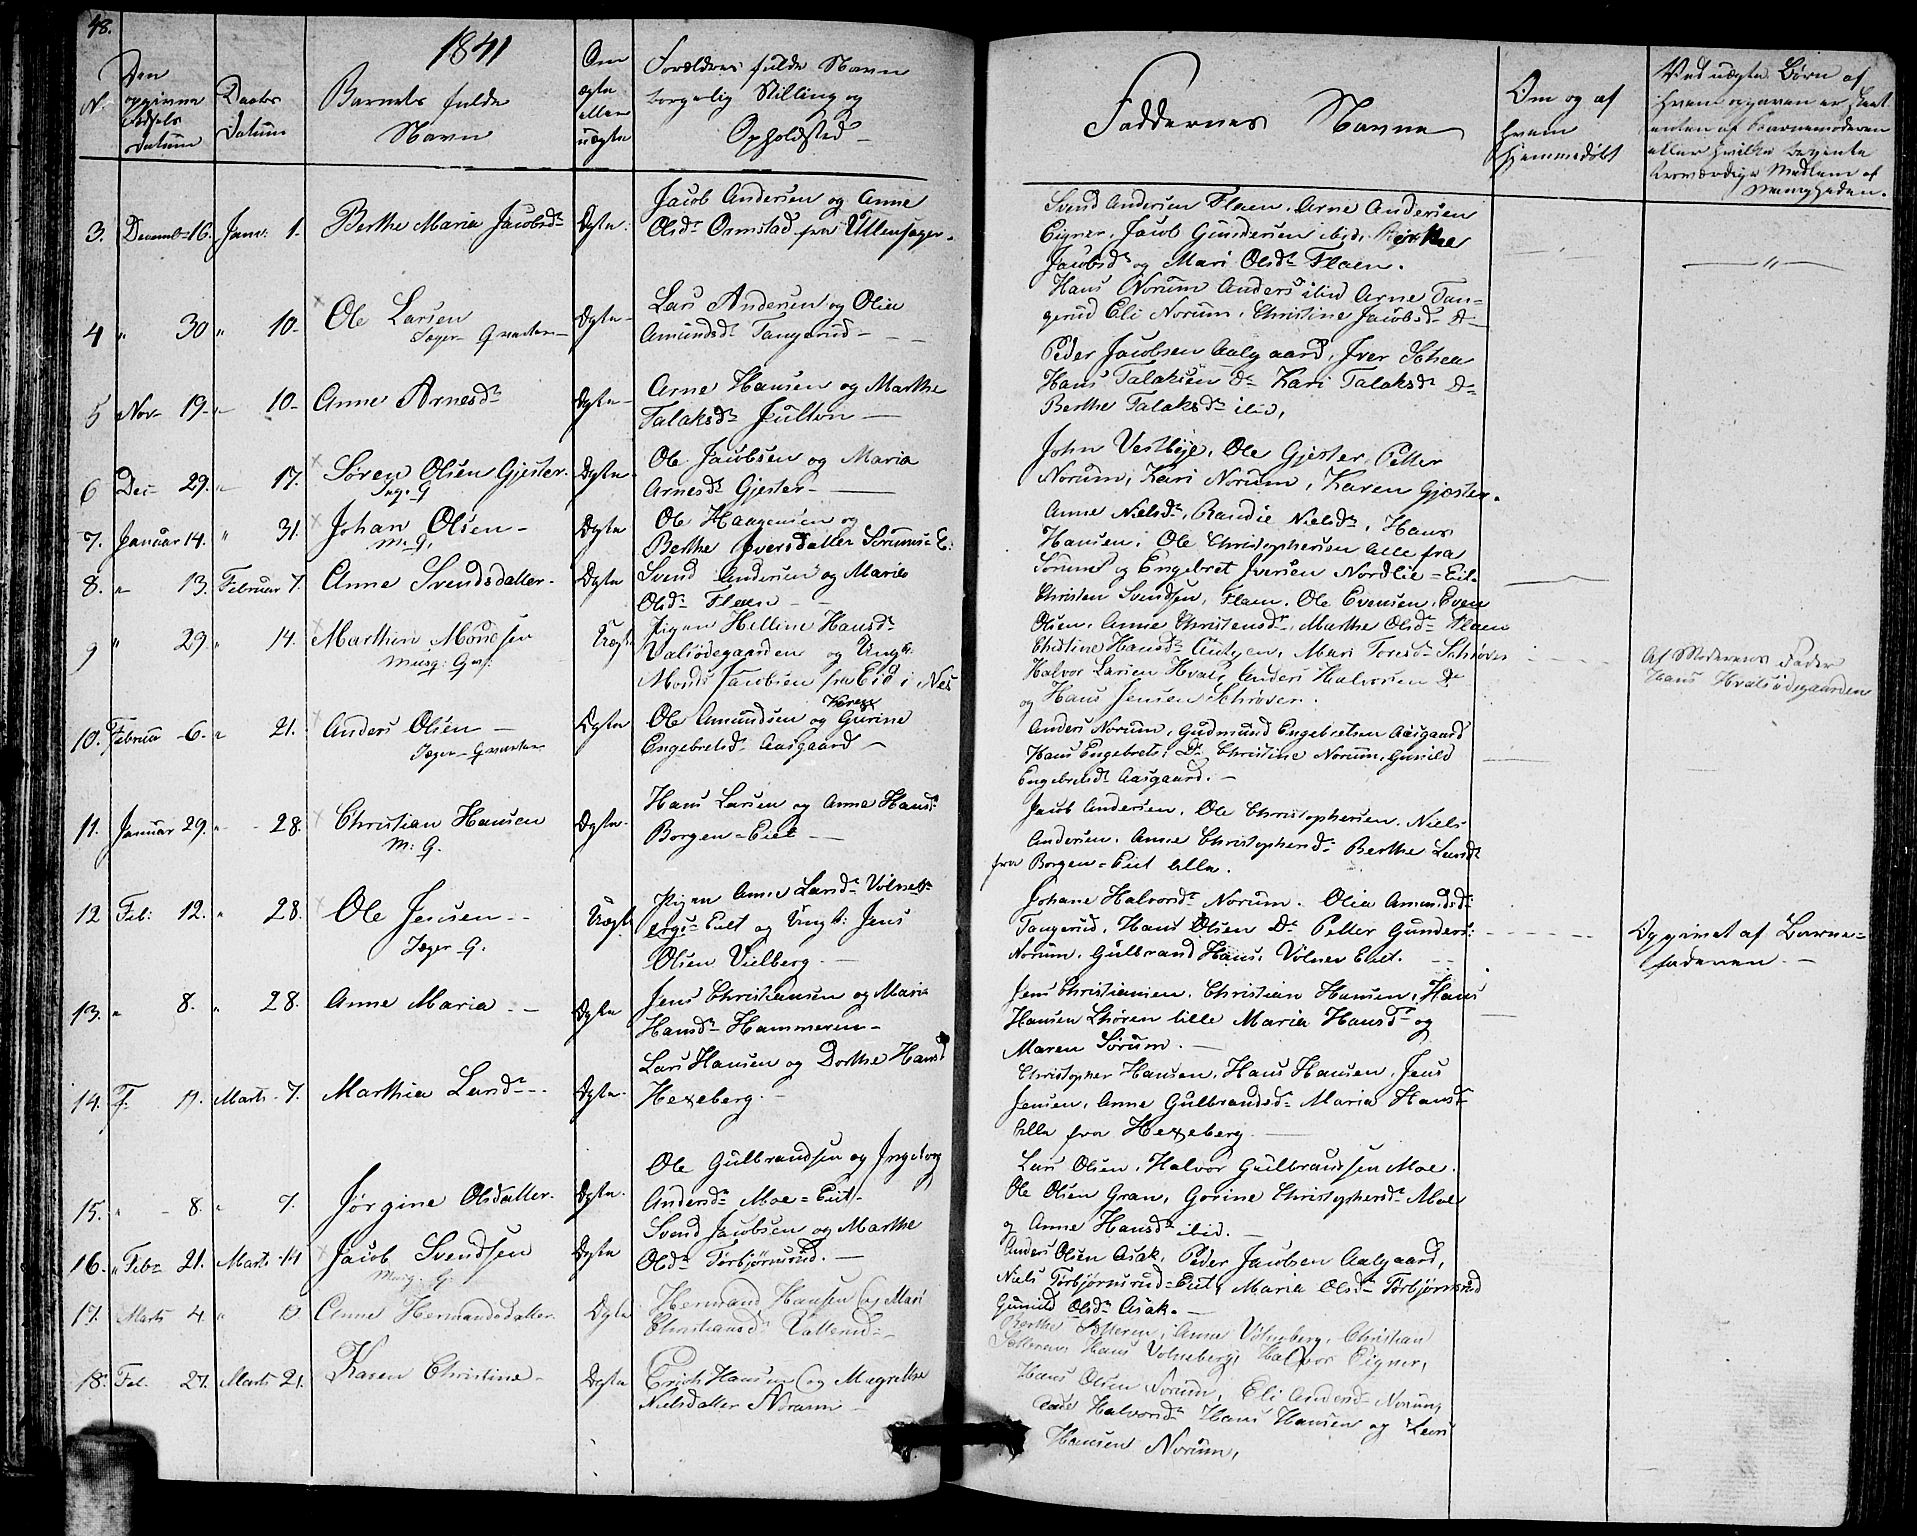 48.
1841
N.
Den
opgivne
Fødsels
Datum
Daabs
Datum
Barnets fulde
Navn
Om
ægte
eller
uægte
Forældres fulde Navn
borgerlig Stilling og
Opholdsted
Faddernes Navne
Om og af
hvem
hjemmedøbt
Ved uægte Børn af
hvem opgaven er skeet
enten af Barnemoderen
eller hvilke bekjente
troværdige Medlem af
Menigheden.
3. Decemb= 16. Janu: 1. Berthe Maria Jacobsdr Ægte.
Jacob Andersen og Anne
Olsdr Ormstad fra Ullensager.
Svend Andersen Flaen, Arne Andersen
Eigner, Jacob Gundersen ibid,
Jacobsdr og Mari Olsdr Flaen.
4 " 30 " 10. Ole Larsen Ægte
Jæger-Qvarter
Lars Andersen og Olia
Amundsdr Tangerud
Hans Norum Anders ibid Arne Tan=
gerud Eli Norum, Christine Jacobsd Do
5 Nov 19 " 10 Anne Arnesdr Ægte
Arne Hansen og Marthe
Talaksdr Julton
Peder Jacobsen Aalgaard, Iver
Hans Talaksen Do Kari Talaksdr Do
Berthe Talaksdr ibid,
6 Dec 29. " 17. Søren Olsen Gjester. Ægte
Jæg. G
Ole Jacobsen og Maria
Arnesdr Gjester
John Vestbye, Ole Gjester, Petter
Norum, Kari Norum, Karen Gjester.
7. Januar 14. " 31. Johan Olsen Ægte
M. G.
Ole Haagensen og
Berthe Iversdatter Sørums=E:
Anne Nielsdr, Randie Nielsdr, Hans
Hansen, Ole Christophersen alle fra
Sørum og Engebret Iversen Nordlie=Eie.
8. " 13. Februar 7. Anne Svendsdatter Ægte
Svend Andersen og Marie
Olsdr Flaen
Christen Svendsen, Flaen, Ole Evensen, Even
Olsen, Anne Christensdr, Marthe Olsdr Flaen
9 " 29 " 14. Marthin Monssen Uægt
Musq: G
Pigen Helline Hansdr
Valsødegaarden og Ungk:
Mons Jacobsen fra Eid i Nes
Christine Hansdr, Mari Toresdr Schrøver
Halvor Larsen Hval, Anders Halvorsen Do
og Hans Jensen Schrøver.
Af Moderens Fader
Hans Hvalsødegaarden
10. Februar 6. " 21. Anders Olsen Ægte
Jæger-Qvarter
Ole Amundsen og Gurine
Engebretsdr Aasgaard
Anders Norum, Gudmund Engebretsen Aasgaard
Hans Engebrets: Do Christine Norum, Gunild
Engebretsdr Aasgaard.
11. Januar 29. " 28. Christian Hansen Ægte
M: G.
Hans Larsen og Anne Hansd:
Borgen=Eiet
Jacob Andersen, Ole Christophersen, Niels
Andersen, Anne Christophersdr Berthe Larsdr
fra Borgen=Eiet alle.
12 Feb: 12. " 28. Ole Jensen Uægt
Jæger-G.
Pigen Anne Larsdr Vølneb=
ergs=Eiet og Ungk: Jens
Olsen Vielberg.
Johane Halvorsdr Norum, Olia Amundsd:
Tangerud, Hans Olsen Do Petter Gunders:
Norum, Gulbrand Hans, Vølner Eiet.
Opgivet af Barne=
faderen.
13. " 8. " 28. Anne Maria Ægte
Jens Christiansen og Maria
Hansdr Hammeren
Jens Christiansen, Christian Hansen, Hans
Hansen lille Maria Hansdr og
Maren Sørum.
14. F. 11. Marts 7. Marthia Larsdr Ægte.
Lars Hansen og Dorthe Hansd
Hexeberg.
Christopher Hansen, Hans Hansen, Jens
Jensen, Anne Gulbrandsd Maria Hansd
alle fra Hexeberg
15. " 8. " 7. Jørgine Olsdatter. Ægte.
Ole Gulbrandsen og Ingeborg
Andersdr Moe=Eiet
Lars Olsen, Halvor Gulbrandsen Moe.
Ole Olsen Gran, Gorine Christophersdr Moe
og Anne Hansdr ibid.
16. " Feb= 21. Marts 14 Jacob Svendsen Ægte
Musq. G.
Svend Jacobsen og Marthe
Olsdr Torbjørnsrud.
Anders Olsen Asak, Peder Jacobsen Aalgaard,
Niels Torbjørnsrud=Eiet, Maria Olsdr Torbjørnsrud
Gunild Olsdr Asak.
17. Marts 4. " Anne Hermandsdatter Ægte
Hermand Hansen og Mari
Christiansdr Vallerud
Berthe, Anne Vølneberg, Christian
Hans Volneberg, Halvor Eigner,
18. Feb. 27. Marts 21. Karen Christine Ægte
Erich Hansen og Magrethe
Nielsdatter Norum
Hans Olsen Norum, Eli Andersd Norum,
Halvorsdr Hans Hansen og Lars
Hansen Norum,